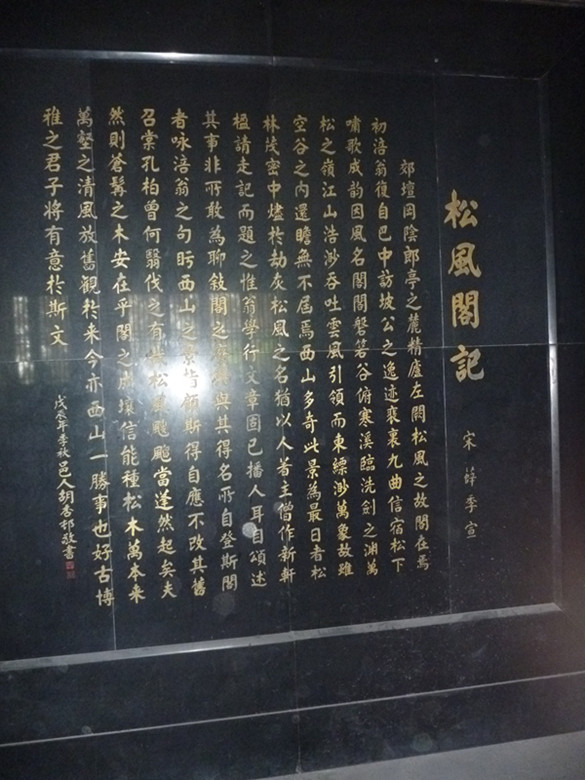 松風閣記
宋 薛季宣
郊壇岡陰郎亭之麓精廬左閼松風之故閣在焉
初涪翁復自巴中訪坡公之逸迹裵裹九曲信宿松下
嘯歌成韵因風名閣閣磐箬谷俯寒溪臨洗劍之淵萬
松之嶺江山浩渺吞吐雲風引領而東縹渺萬象故雖
空谷之内還瞻無不屆焉西山多奇此景為最日者松
林茂密中燼於劫灰松風之名猶以人著主僧作新軒
楹請走記而題之惟翁學行文章固已播人耳目頌述
其事非所敢為聊敍閣之與其得名所自登斯閣
者咏涪翁之句眄西山之景斯得自應不改其舊
召棠孔柏曾何翳伐之有松風颼颼當逢然起矣夫
然則蒼髯之木安在乎閣之成壞信能種松木萬本来
萬壑之清風放舊觀於来今亦西山一勝事也好古博
雅之君子將有意於斯文
戊辰年季秋邑人胡香邨敬書